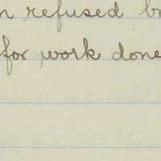 refused
for work done